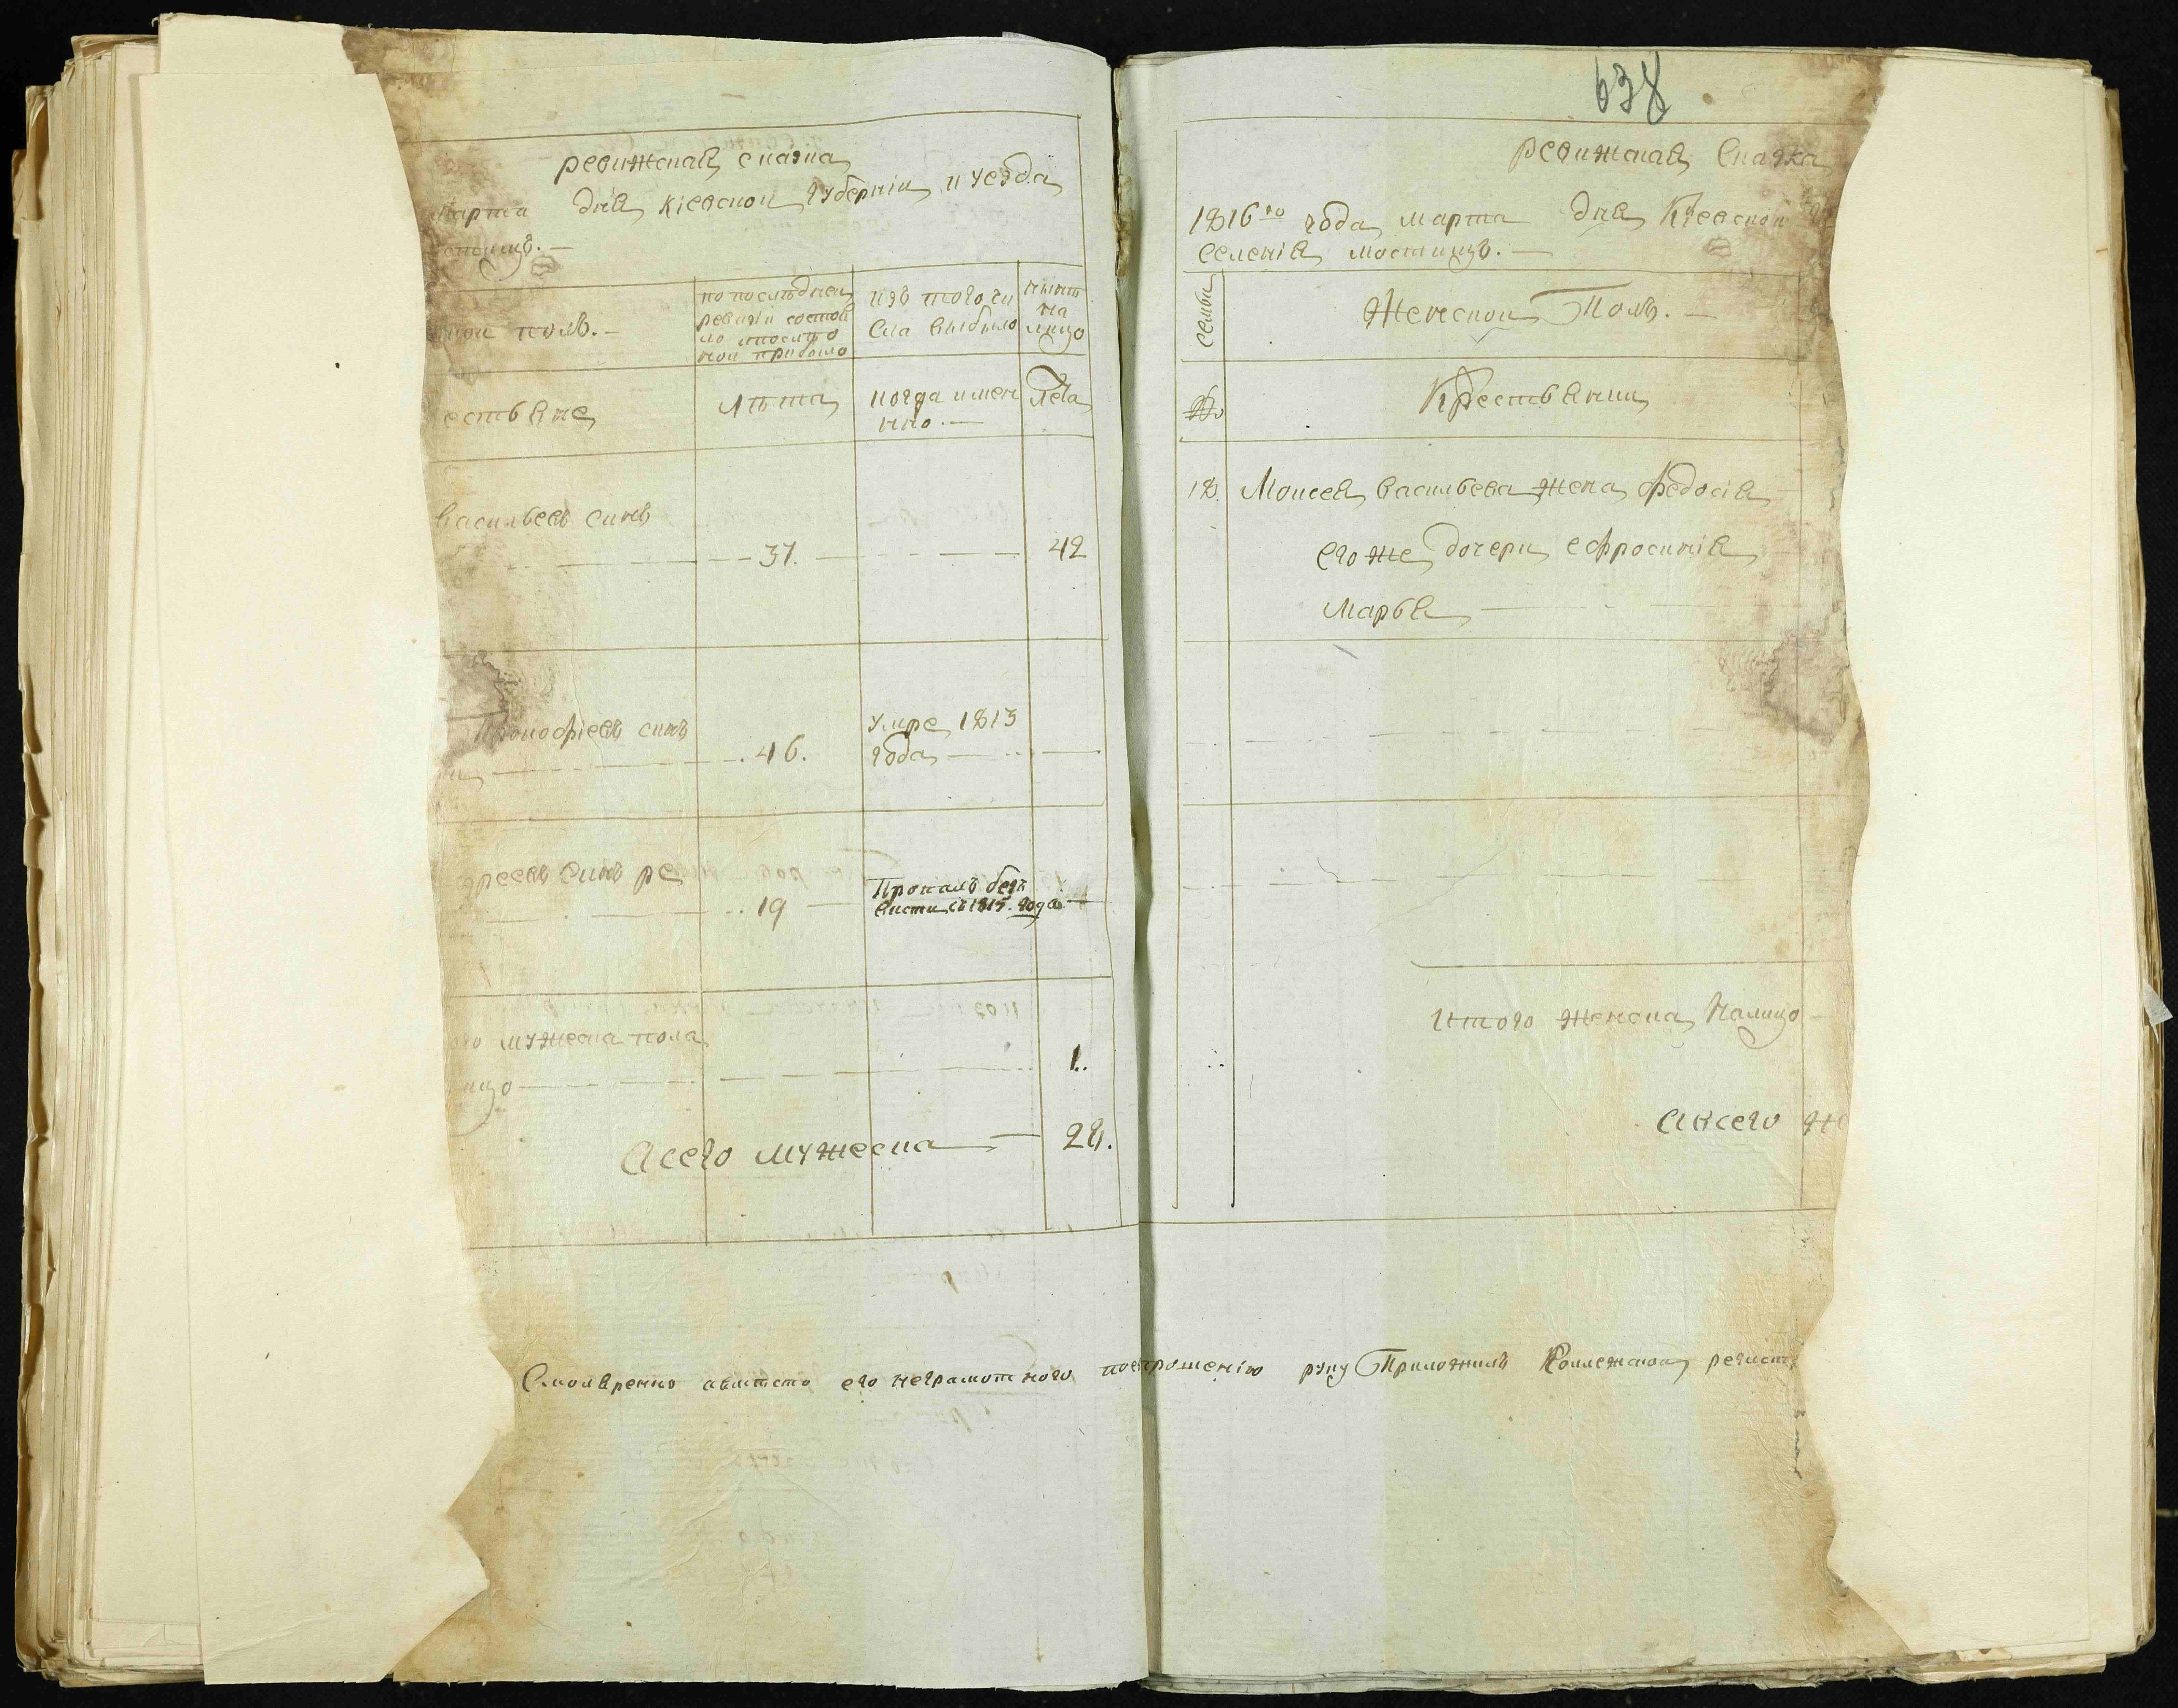 ревижская сказка
марта дня киевской губернiи и уезда
стищъ.
ной полъ.
по последней
ревизiи состоя
ло и после то
ной прибыло
изъ того чи
сла выбыло
ныне
на
лицо
естьяне
лета
когда имен
нно.
Лета
васильевъ синъ
37.
42
Прокофiевъ синъ
46.
умре 1813
года
дреевъ синъ ре
19
Пропалъ безъ
висти съ 1815. года
ого мужеска пола
ицо
1.
А всего мужеска
28.
638
ревижская сказка
1816го года марта дня Кiевской
селенiя мостищъ.
семьи
Женской Полъ.
№
Крестьянки
18. Моисея васильева жена федосiя
его же дочери ефросинiя
марья
Итого женска Налицо
А всего же
Смолвренко авместо его неграмотного попрошенiю руку Приложилъ Коллежской регист